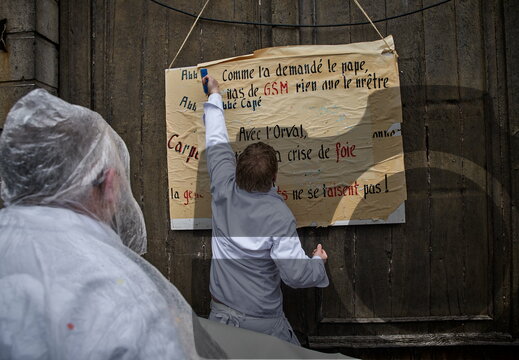 Abb Comme l'a demandé le pape,
pas de GSM rien que le prêtre
Abbé Capé
Avec l'Orval,
Carp a crise de foie
la ge ts ne se taisent pas !